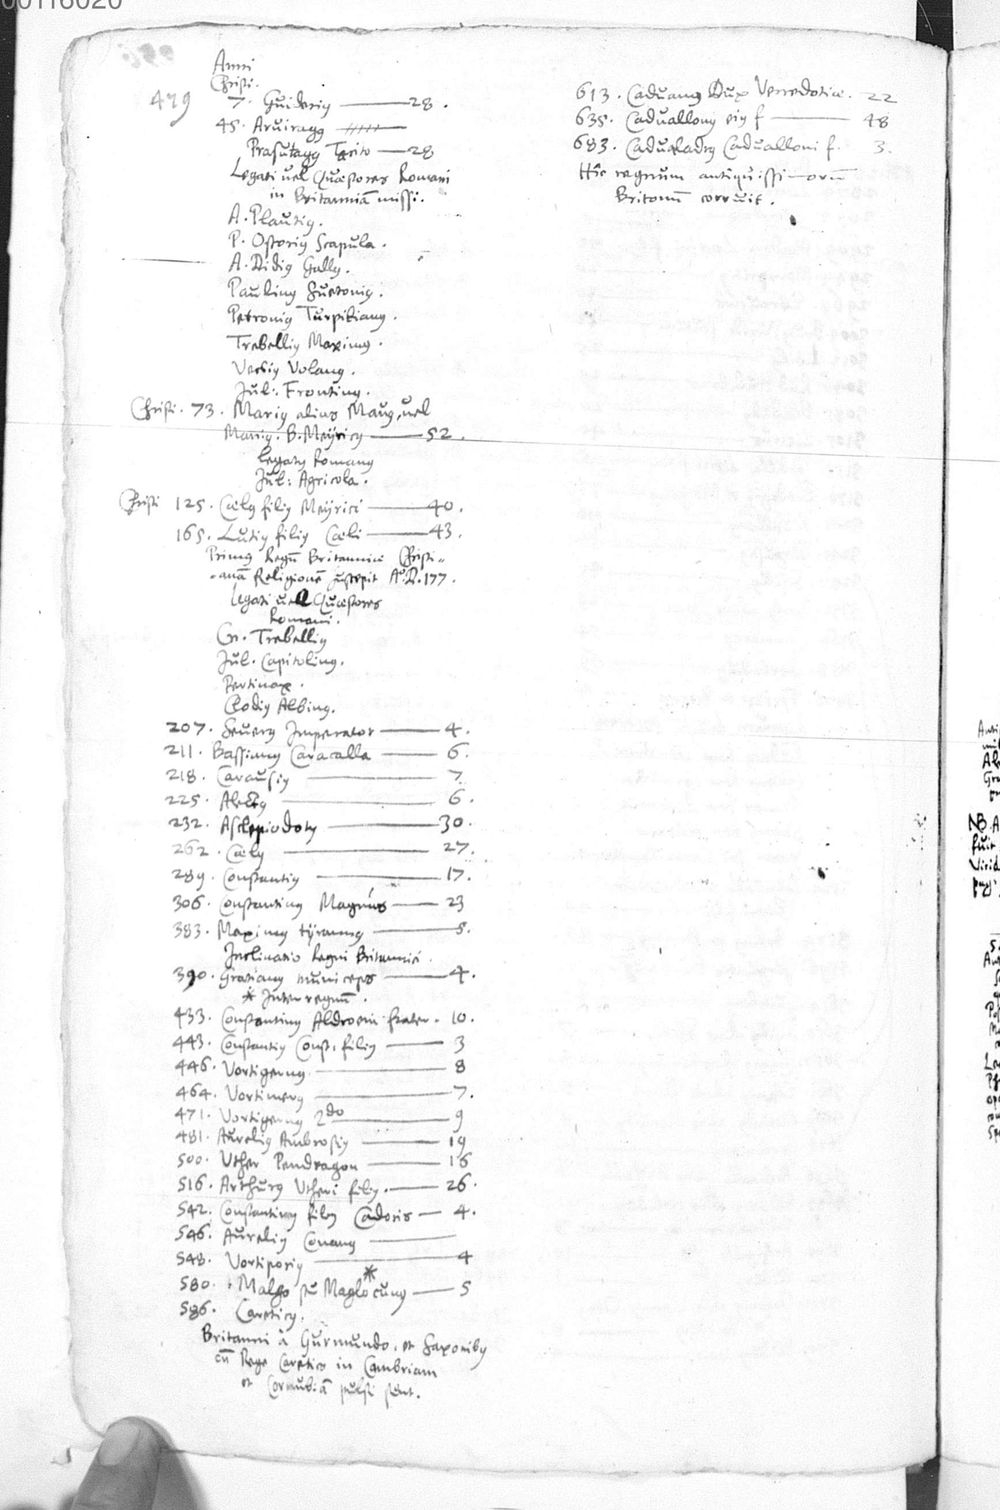 00116020
479
Anni
Christi.
7. Guideriꝰ 28.
45. Aruiragꝰ
Prasutagꝰ Tacito 28
Legati uel Quæstores Romani
in Britanniā missi.
A. Plautiꝰ.
P. Ostoriꝰ Scapula.
A. Didiꝰ Gallꝰ.
Paulinꝰ Suetoniꝰ.
Petroniꝰ Turpilianꝰ.
Trebelliꝰ Maximꝰ.
Vectiꝰ Volanꝰ.
Jul: Frontinꝰ.
Christi. 73. Mariꝰ alias Mauꝰ, uel
Mariꝰ. B. Meÿricꝰ 52.
Legatꝰ Romanꝰ
Jul: Agricola.
Christi 125. Cœlꝰ filiꝰ Meÿrici 40.
165. Lutiꝰ filiꝰ Cœli 43.
Primꝰ Regū Britanniæ Christi-
anā Religionē suscepit Aº D. 177.
Legati uel Quæstores
Romani.
Cn. Trebelliꝰ
Jul. Capitolinꝰ.
Pertinax.
Clodiꝰ Albinꝰ.
207. Seuerꝰ Imperator 4.
211. Bassianꝰ Caracalla 6.
218. Carausiꝰ 7
225. Alectꝰ 6.
232. Asclepiodotꝰ 30.
262. Cœlꝰ 27.
289. Constantiꝰ 17.
306. Constantinꝰ Magnus 23
383. Maximꝰ tÿrannꝰ 5.
Inclinatio Regni Britannici.
390. Gratianꝰ municeps 4.
* Interregnū.
433. Constantinꝰ Aldroeni frater. 10.
443. Constantiꝰ Const. filiꝰ 3
446. Vortigernꝰ 8
464. Vortimerꝰ 7.
471. Vortigernꝰ 2do 9
481. Aureliꝰ Ambrosiꝰ 19
500. Uther Pendragon 16
516. Arthurꝰ Utheri filꝰ. 26.
542. Constantinꝰ filꝰ Cadoris 4.
546. Aureliꝰ Conanꝰ
548. Vortiporiꝰ 4
580. Malgo su Maglocunꝰ * 5
586. Careticꝰ.
Britanni à Gurmundo, et Saxonibꝰ
cū Rege Caretico in Cambriam
et Cornubiā pulsi sunt.
613. Caduanꝰ Dux Venedotiæ. 22
635. Caduallonꝰ eiꝰ f 48
683. Cadwaladrꝰ Cadualloni f. 3.
Hîc regnum antiquissimorū
Britonū corruit.